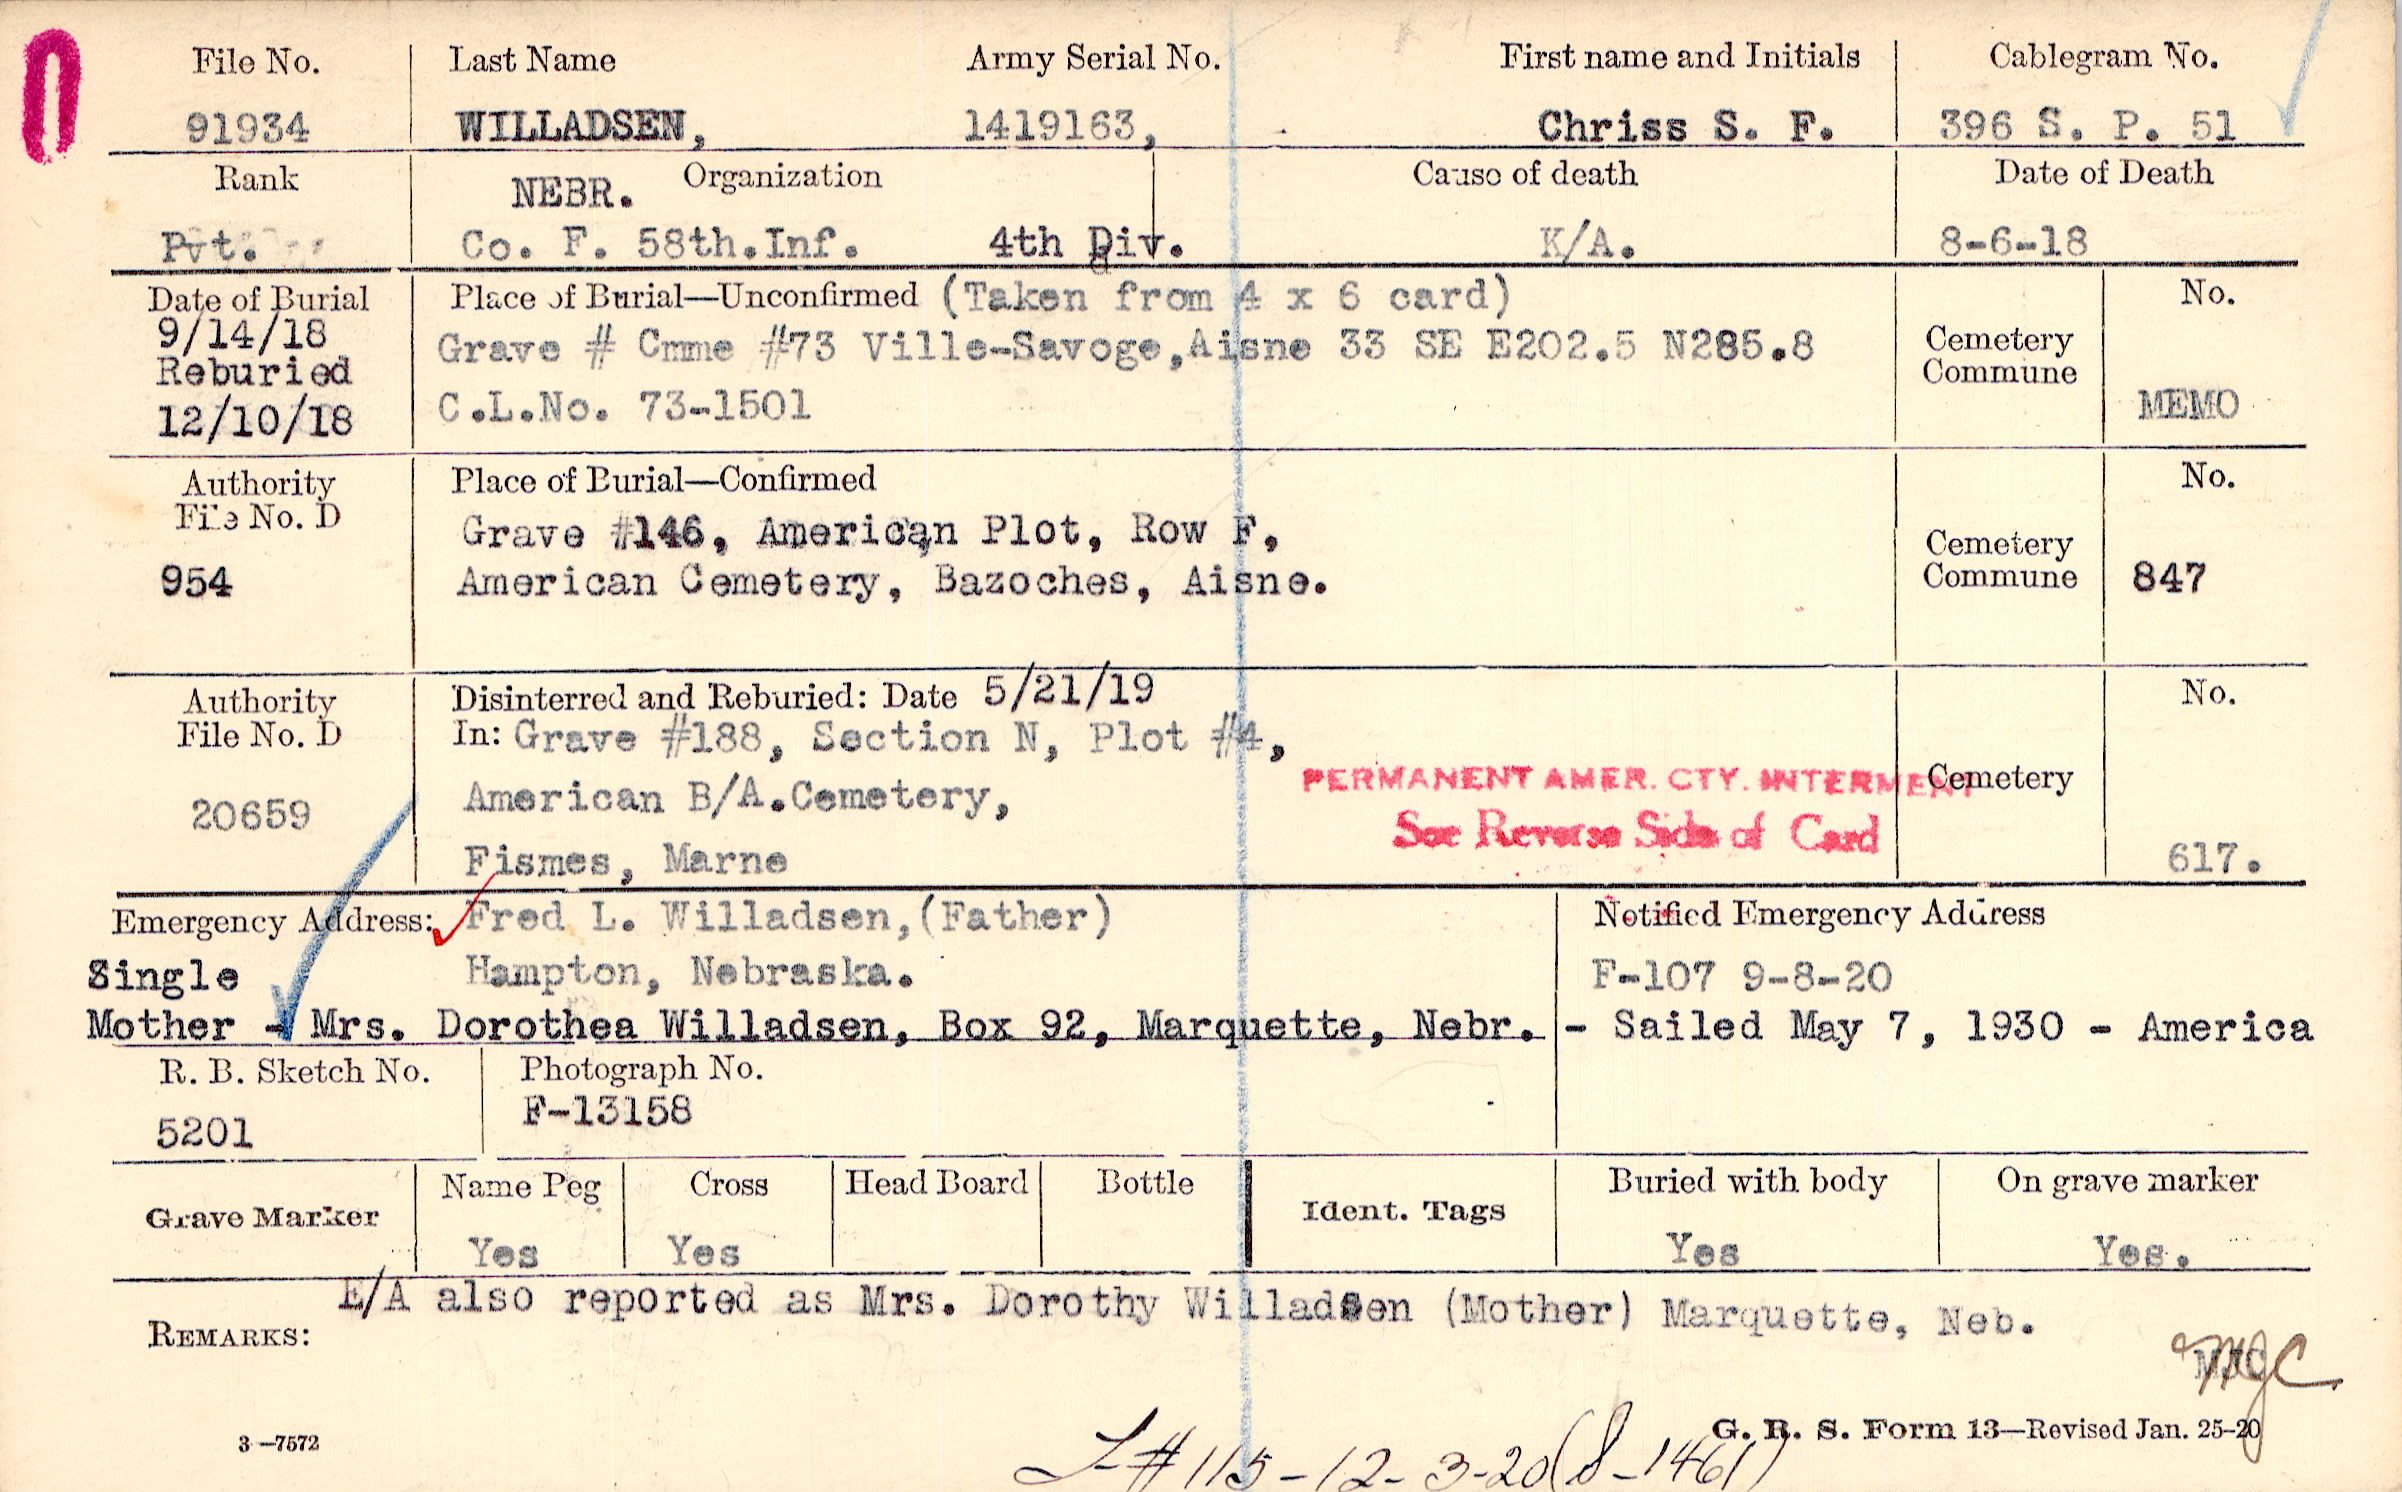 File No. Last Name Army Serial No. First name and Initials Cablegram No.
91934 WILLADSEN, 1419163, Chriss S. F. 396 S. P. 51
Rank NEBR. Organization Cause of death Date of Death
Pvt. Co. F. 58th.Inf. 4th Div. K/A. 8-6-18
Date of Burial Place of Burial—Unconfirmed (Taken from 4 x 6 card) No.
9/14/18 Grave # Cmme #73 Ville-Savoge,Aisne 33 SE E202.5 N285.8 Cemetery
Reburied Commune
12/10/18 C.L.No. 73-1501 MEMO
Authority Place of Burial—Confirmed No.
File No. D Grave #146, American Plot, Row F, Cemetery
954 American Cemetery, Bazoches, Aisne. Commune 847
Authority Disinterred and Reburied: Date 5/21/19 No.
File No. D In: Grave #188, Section N, Plot #4,
20659 American B/A.Cemetery, PERMANENT AMER. CTY. INTERMENT Cemetery
See Reverse Side of Card
Fismes, Marne 617.
Emergency Address: Fred L. Willadsen,(Father) Notified Emergency Address
Single Hampton, Nebraska. F-107 9-8-20
Mother - Mrs. Dorothea Willadsen, Box 92, Marquette, Nebr. - Sailed May 7, 1930 - America
R. B. Sketch No. Photograph No.
5201 F-13158
Grave Marker Name Peg Cross Head Board Bottle Ident. Tags Buried with body On grave marker
Yes Yes Yes Yes.
E/A also reported as Mrs. Dorothy Willadsen (Mother) Marquette, Neb.
REMARKS:
MJC
3—7572 G. R. S. Form 13—Revised Jan. 25-20
L-#115-12-3-20(8-1461)